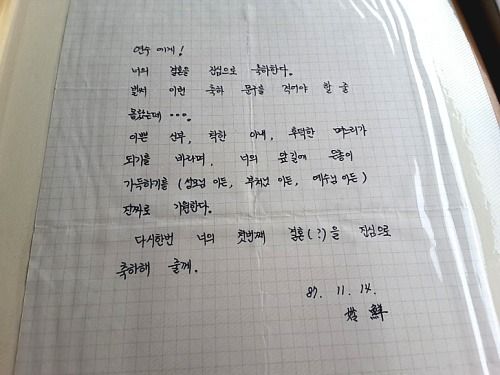 연수 에게!
너의 결혼을 진심으로 축하한다.
벌써 이런 축하 문구를 적어야 할 줄
몰랐는데 ….
이쁜 신부, 착한 아내, 후덕한 며느리가
되기를 바라며, 너의 앞길에 은총이
가득하기를 (성모님 이든, 부처님 이든, 예수님 이든)
진짜로 기원한다.
다시한번 너의 첫번째 결혼(?)을 진심으로
축하해 줄께.
87. 11. 14.
鮮